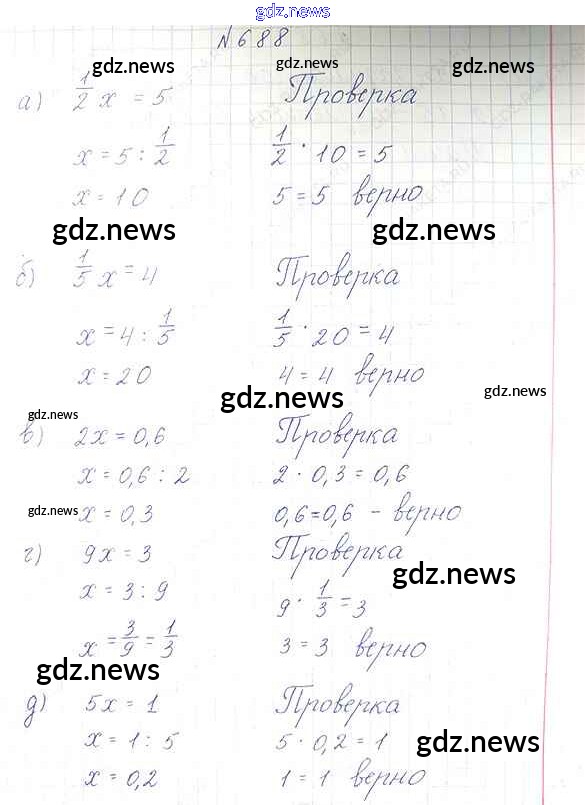 gdz.news
№688
gdz.news gdz.news gdz.news
а) 1/2 x = 5 Проверка
x = 5 : 1/2 1/2 · 10 = 5
x = 10 5 = 5 верно
gdz.news gdz.news
б) 1/5 x = 4 Проверка
x = 4 : 1/5 1/5 · 20 = 4
x = 20 4 = 4 верно
gdz.news gdz.news
gdz.news
в) 2x = 0,6 Проверка
x = 0,6 : 2 2 · 0,3 = 0,6
gdz.news x = 0,3 0,6 = 0,6 - верно
г) 9x = 3 Проверка
gdz.news
x = 3 : 9 9 · 1/3 = 3
x = 3/9 = 1/3 3 = 3 верно
gdz.news
д) 5x = 1 Проверка
x = 1 : 5 5 · 0,2 = 1 gdz.news
x = 0,2 1 = 1 верно